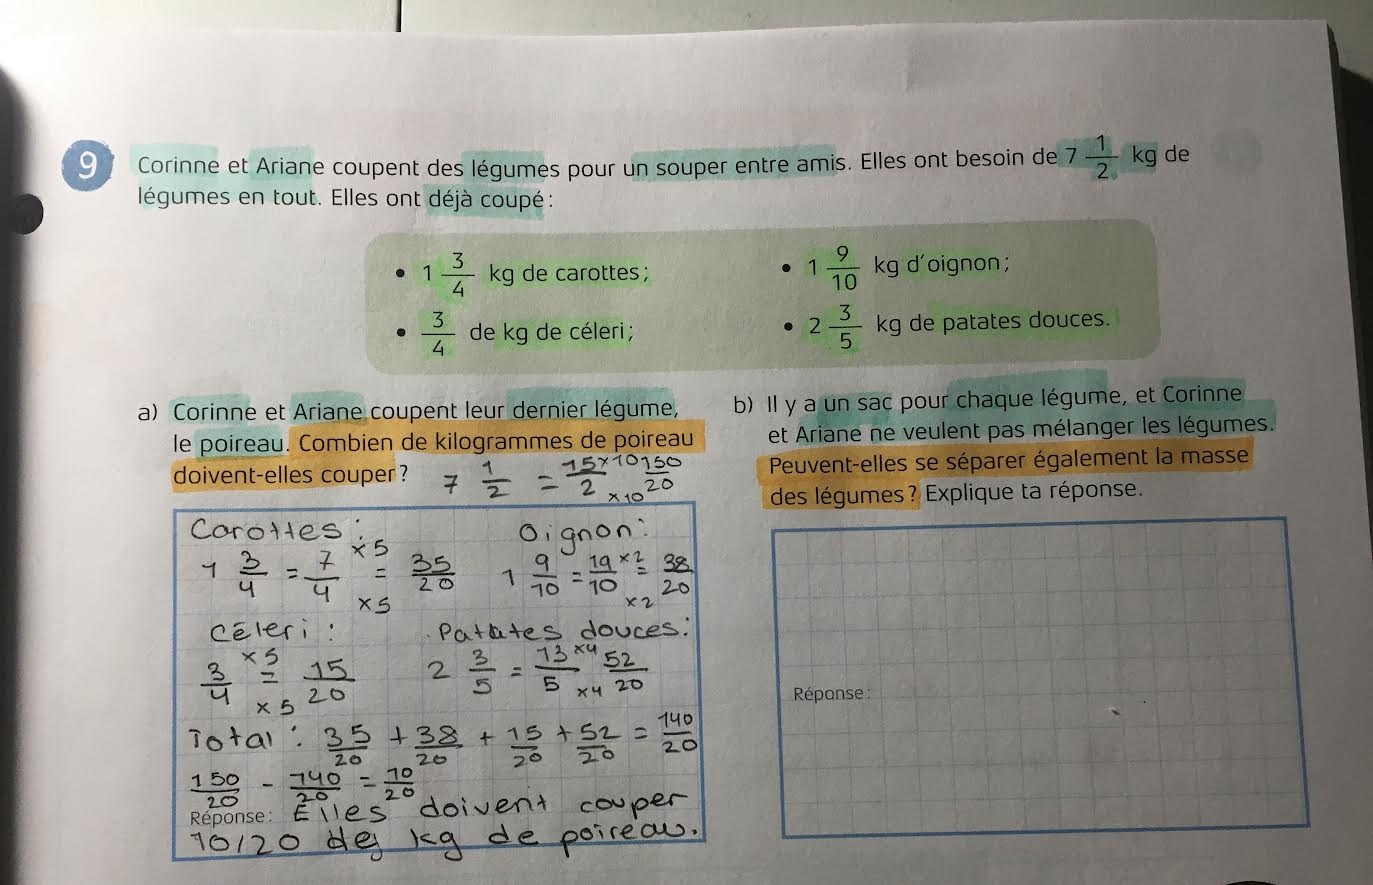 9 Corinne et Ariane coupent des légumes pour un souper entre amis. Elles ont besoin de 7 1/2 kg de
légumes en tout. Elles ont déjà coupé :
• 1 3/4 kg de carottes ;
• 3/4 de kg de céleri ;
• 1 9/10 kg d'oignon ;
• 2 3/5 kg de patates douces.
a) Corinne et Ariane coupent leur dernier légume,
le poireau. Combien de kilogrammes de poireau
doivent-elles couper ? 7 1/2 = 15/2 ×10 ×10 150/20
Carottes :
1 3/4 = 7/4 ×5 = ×5 35/20
Oignon :
1 9/10 = 19/10 ×2 = ×2 38/20
Céleri :
3/4 ×5 = ×5 15/20
Patates douces :
2 3/5 = 13/5 ×4 ×4 52/20
Total : 35/20 + 38/20 + 15/20 + 52/20 = 140/20
150/20 - 140/20 = 10/20
Réponse : Elles doivent couper
10/20 de kg de poireau.
b) Il y a un sac pour chaque légume, et Corinne
et Ariane ne veulent pas mélanger les légumes.
Peuvent-elles se séparer également la masse
des légumes ? Explique ta réponse.
Réponse :